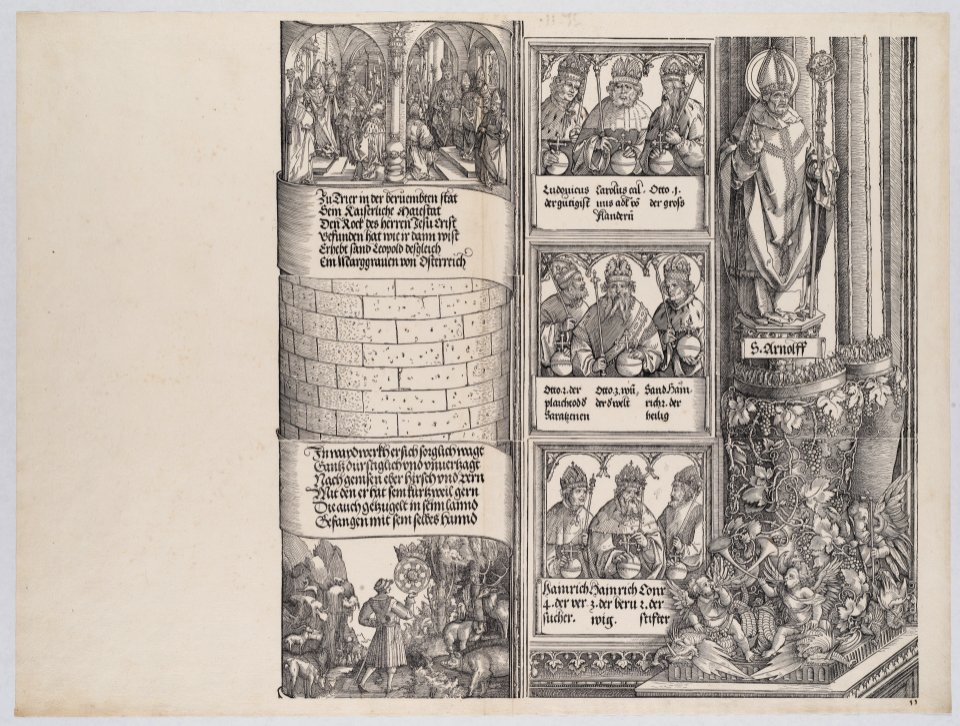 Zu Trier in der beruembten stat
Dem Kaiserliche Maiestat
Den Rock des herren Jesu Crist
Befunden hat wie ir dann wist
Erhebt sand Leopold desgleich
Ein Marggraven von Osterreich
In waydwerkh er sich sorglich wagt
Gantz durstiglich vnd vnuerzagt
Nach gemsen eber hirsch vnd Pern
Mit den er hat sein kurtzweil gern
Die auch getzugelt in seim lannd
Gefangen mit sein selbs hannd
Ludouicus
der gutigist
Carolus cal
uus adl vo
Flandern
Otto .1.
der gros
Otto .2. der
plaichtodd
Saratzenen
Otto .3. wu
der d welt
Sand Hain
rich 2. der
heilig
Hainrich Hainrich Conr
4. der ver 3. der beru 2. der
sucher. wig. stifter
S. Arnolff